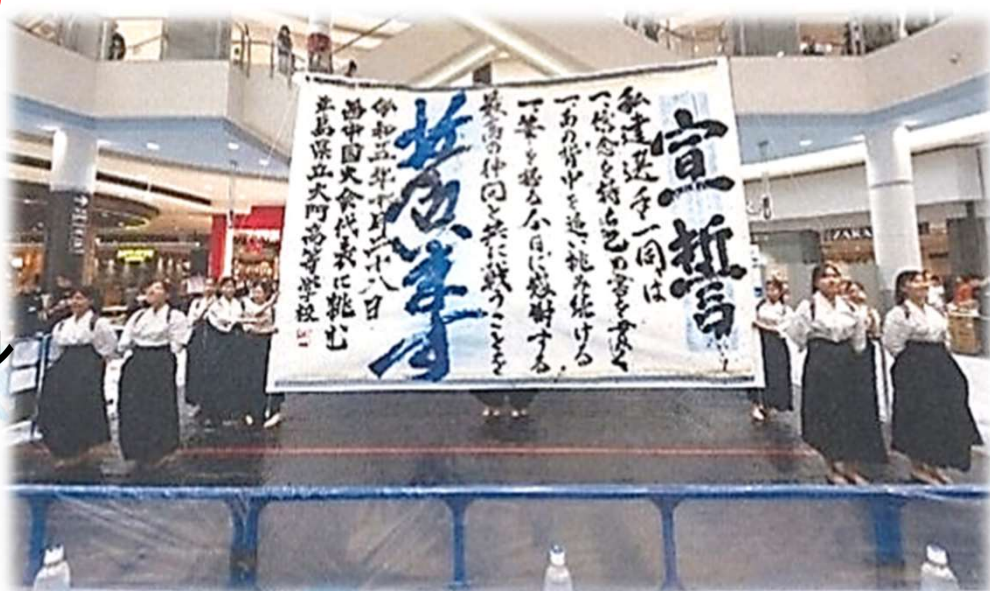 宣誓
私達選手一同は
一、信念を持ち己の書を貫く
一、あの背中を追い挑み続ける
一、筆を握る今日に感謝する
最高の仲間と共に戦うことを
令和五年十月二十八日
中国大会代表に挑む
広島県立大門高等学校
ZARA